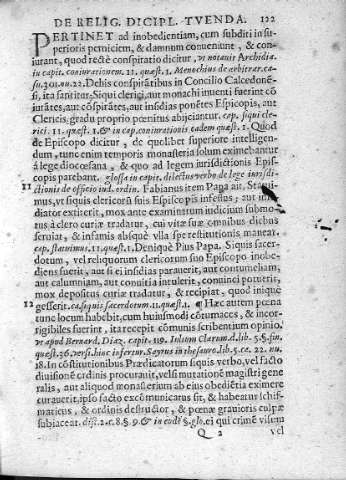 DE RELIG. DICIPL. TVENDA. 122
PERTINET ad inobedientiam, cum subditi in su-
perioris perniciem, & damnum conueniunt, & con-
iurant, quod rectè conspiratio dicitur, vt notauit Archidia.
in capit. coniurationem. 11. quæst. 1. Menochius de arbitrar. ca-
su. 301. nu. 22. De his conspirãtibus in Concilio Calcedonē-
si, ita sanitur. Siqui clerici, aut monachi inuenti fuerint cō
iurãtes, aut cōspirãtes, aut insidias ponētes Episcopis, aut
Clericis, gradu proprio pœnitus abijciantur. cap. siqui cle-
rici. 11. quæst. 1. & in cap. coniurationis eadem quæst. 1. Quod
de Episcopo dicitur, de quolibet superiore intelligen-
dum, tunc enim temporis monasteria solum eximebantur
à lege diocesana, & quo ad legem iurisdictionis Epis-
copis parebant. glossa in capit. dilectus verbo de lege iurisdi-
11 ctionis de officio iud. ordin. Fabianus item Papa ait. Statui-
mus, vt siquis clericorū suis Episcopis infestus, aut insi-
diator extiterit, mox ante examinatum iudicium submo-
tus à clero curiæ tradatur, cui vitæ suæ omnibus diebus
seruiat, & infamis absque vlla spe restitutionis maneat.
cap. statuimus. 11. quæst. 1. Denique Pius Papa. Siquis sacer-
dotum, vel reliquorum clericorum suo Episcopo inobe-
diens fuerit, aut si ei insidias parauerit, aut contumeliam,
aut calumniam, aut conuitia intulerit, conuinci potuerit,
mox depositus curiæ tradatur, & recipiat, quod iniquè
12 gesserit. ca. siquis sacerdotum. 11. quæst. 1. ¶ Hæc autem pœna
tunc locum habebit, cum huiusmodi cōtumaces, & incor-
rigibiles fuerint, ita recepit cōmunis scribentium opinio,
vt apud Bernard. Diaz. capit. 119. Iulium Clarum. d. lib. 5. §. fin.
quæst. 36. vers. hinc infertur. Sayrus in thesauro. lib. 5. ca. 22. nu.
18. In cōstitutionibus Prædicatorum siquis verbo, vel facto
diuisionē ordinis procurauit, vel si mutationē magistri gene
ralis, aut aliquod monasterium ab eius obediētia eximere
curauerit, ipso facto excōmunicatus sit, & habeatur schis-
maticus, & ordinis destructor, & pœnæ grauioris culpæ
subiaceat. dist. 2. c. 8. §. 9. & in eodē §. glo. ei qui crimē visum
Q 2 vel